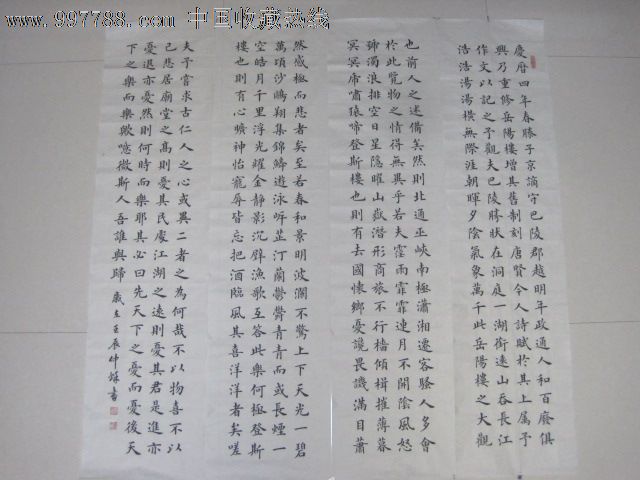 www.997788.com 中国收藏热线
慶曆四年春滕子京謫守巴陵郡越明年政通人和百廢俱
興乃重修岳陽樓增其舊制刻唐賢今人詩賦於其上属予
作文以記之予觀夫巴陵勝狀在洞庭一湖銜遠山吞長江
浩浩湯湯橫無際涯朝暉夕陰氣象萬千此岳陽樓之大觀
也前人之述備矣然則北通巫峽南極瀟湘遷客騷人多會
於此覽物之情得無異乎若夫霪雨霏霏連月不開陰風怒
號濁浪排空日星隱曜山嶽潛形商旅不行檣傾楫摧薄暮
冥冥虎嘯猿啼登斯樓也則有去國懷鄉憂讒畏譏滿目蕭
然感極而悲者矣至若春和景明波瀾不驚上下天光一碧
萬頃沙鷗翔集錦鱗游泳岸芷汀蘭鬱鬱青青而或長煙一
空皓月千里浮光耀金静影沉璧漁歌互答此樂何極登斯
樓也則有心曠神怡寵辱皆忘把酒臨風其喜洋洋者矣嗟
夫予嘗求古仁人之心或異二者之為何哉不以物喜不以
己悲居廟堂之高則憂其民處江湖之遠則憂其君是進亦
憂退亦憂然則何時而樂耶其必曰先天下之憂而憂後天
下之樂而樂歟噫微斯人吾誰與歸 歲在壬辰仲 書